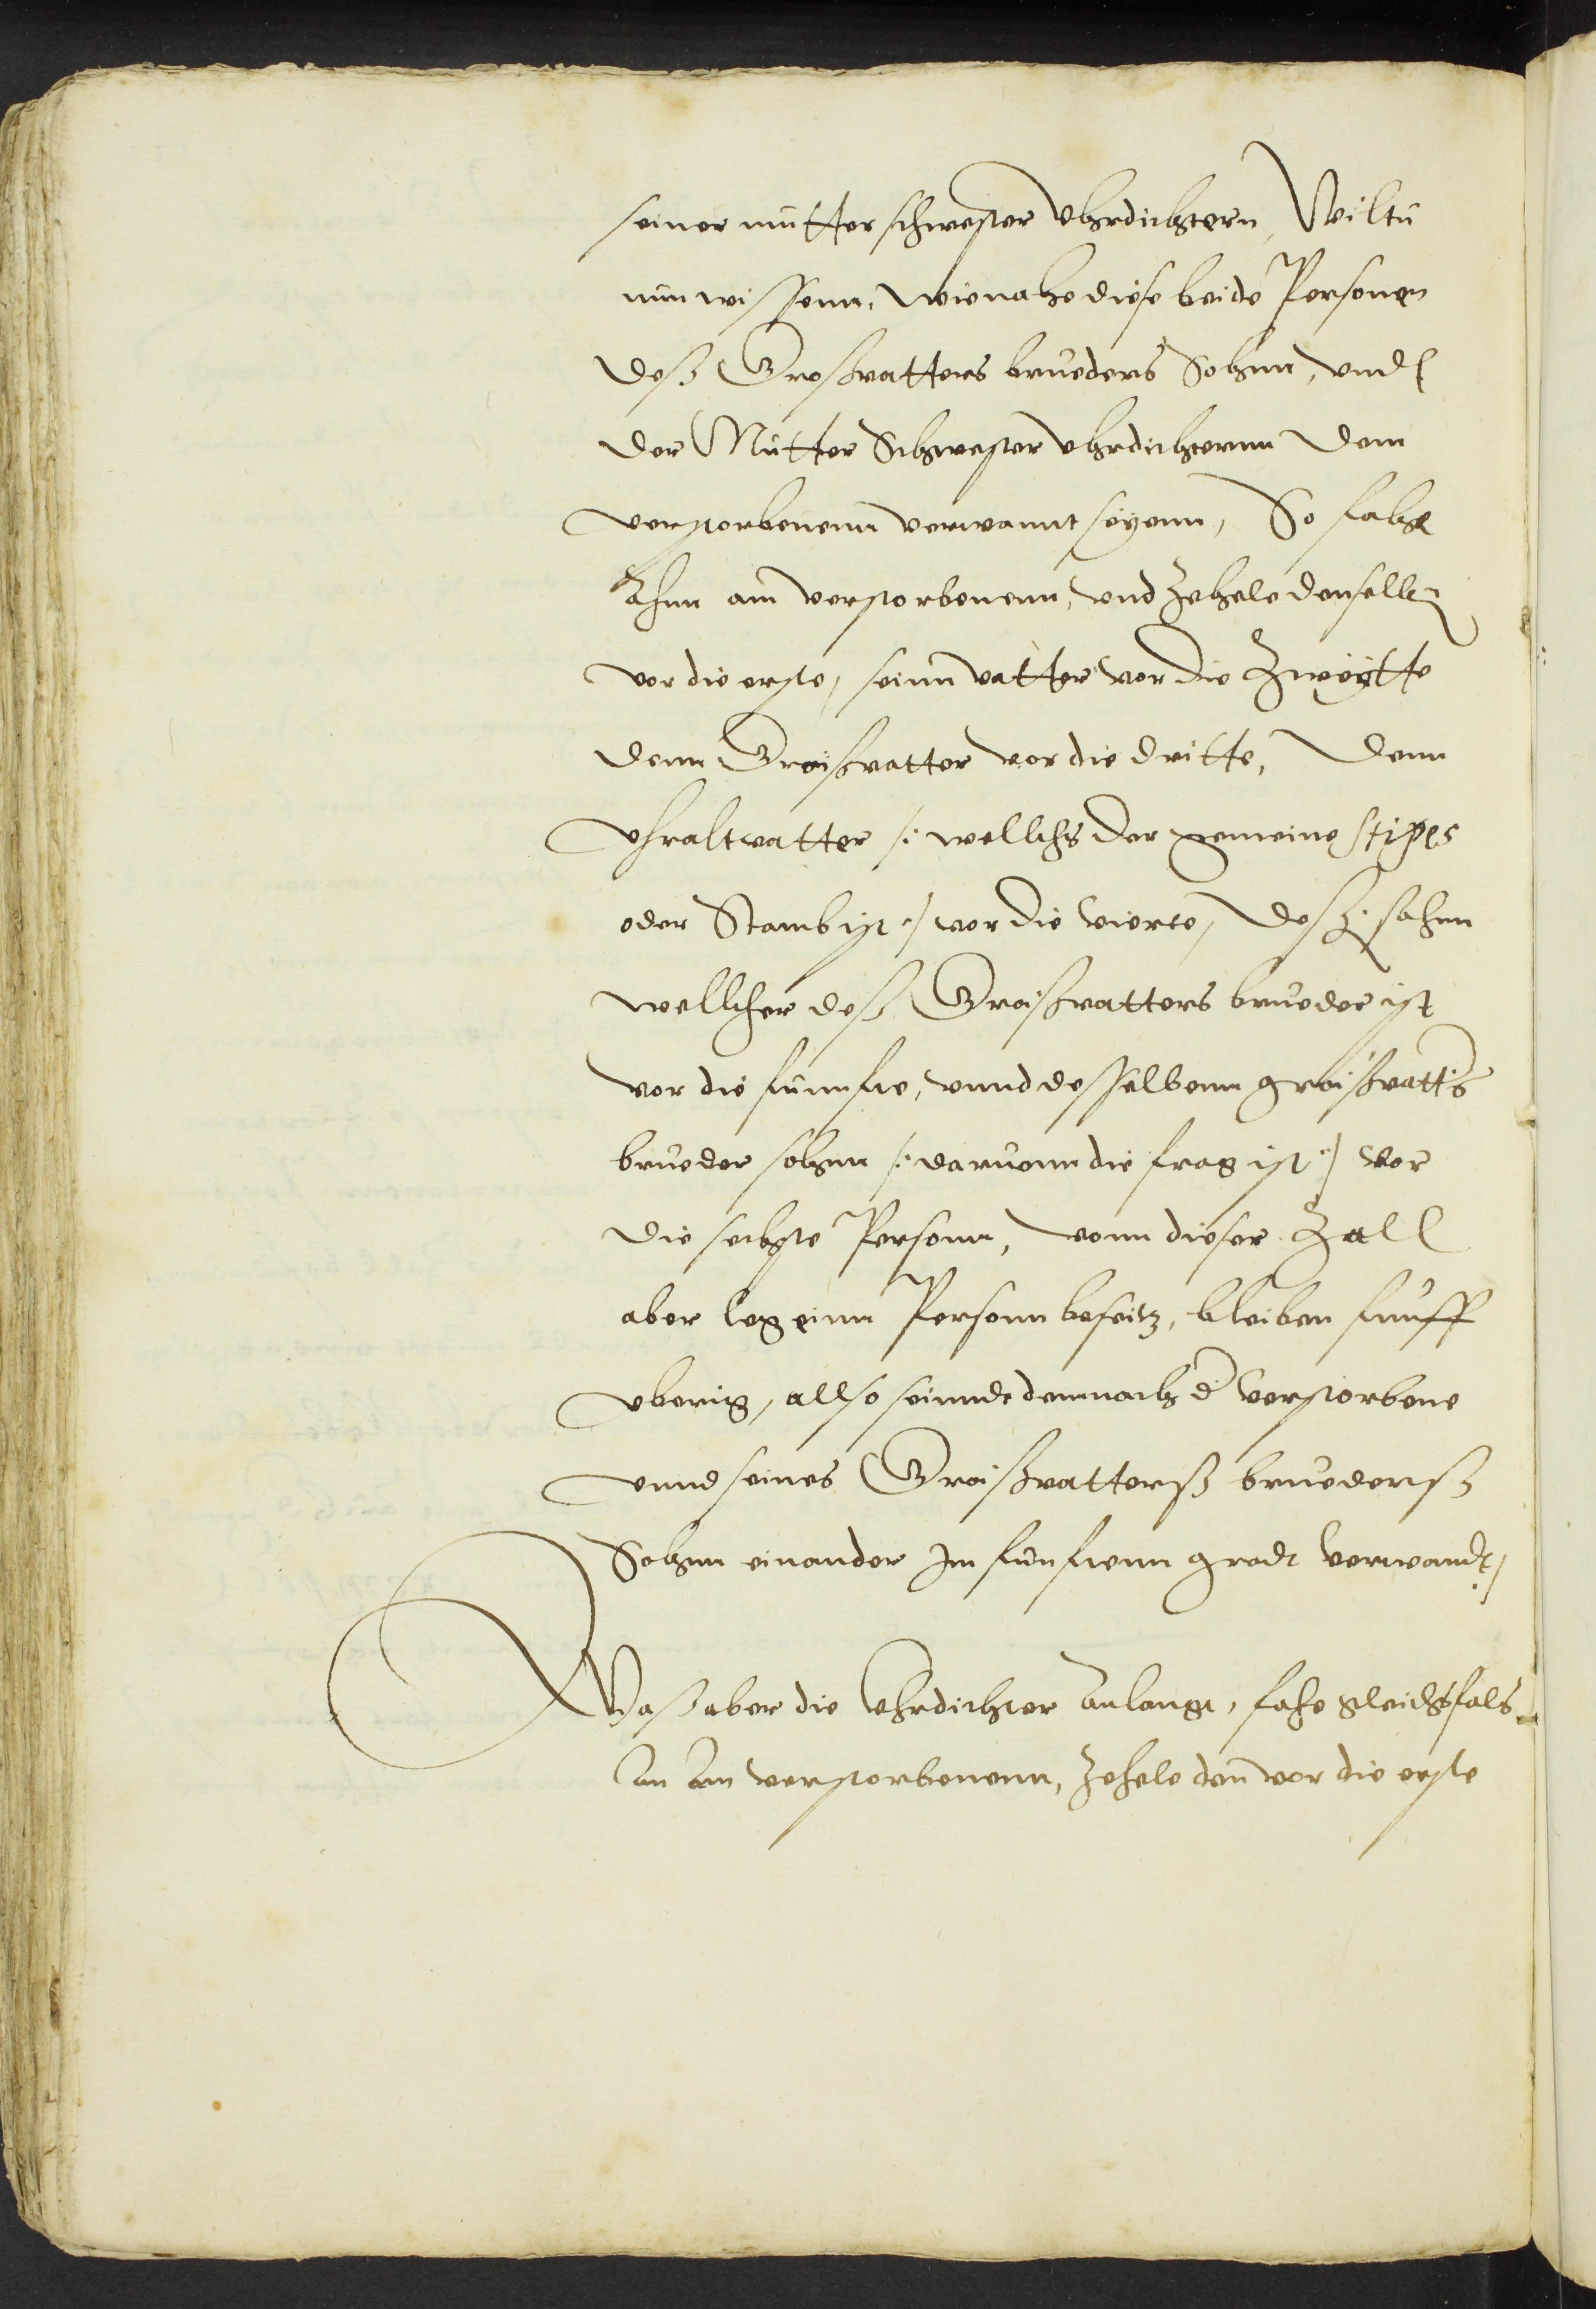 seiner mutter schwester Uhrdichtern, Wiltu
nun wissenn, wie nahe diese beide Personen
deß Großvatters brueders Sohnn, und
der Mutter Schwester uhrdichternn dem
verstorbenenn verwannt seyenn, So fahe
Ahnn am verstorbenenn, und zehele denselben
vor die erste, seinn vatter vor die Zweytte
denn Groißvatter vor die dritte, denn
uhraltvatter /: wellichs der gemeine stipes
oder Stamb ist :/ vor die vierte, deß sohnn
wellicher deß Groißvatters brueder ist
vor die funnfte, unnd desselbenn groißvatters
brueder sohnn /: darvonn die frag ist :/ vor
die sechste Personn, vonn dieser Zall
aber leg einn Personn beseitz, bleiben funff
uberig, allso seinndt demnach d verstorbene
unnd seines Groißvatterß bruederß
Sohnn einander Im funftenn gradt verwandt,
Waß aber die Uhrdichter anlangt, fahe gleichsfals
an am verstorbenenn, zehele den vor die erste